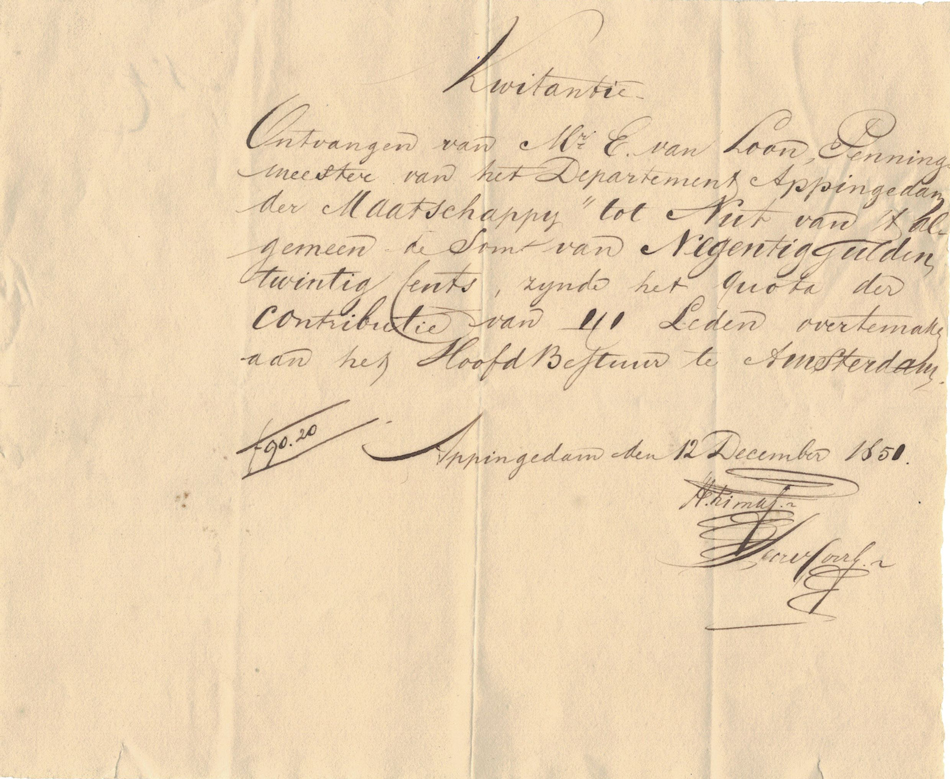 Kwitantie
Ontvangen van Mr. E. van Loon, Penning
meester van het Departement Appingedam
der Maatschappy "tot Nut van 't al-
gemeen de Som van Negentig Gulden
twintig Cents, zynde het quota der
Contributie van 41 Leden overtemaken
aan het Hoofd Bestuur te Amsterdam.
f 90.20
Appingedam den 12 December 1850.